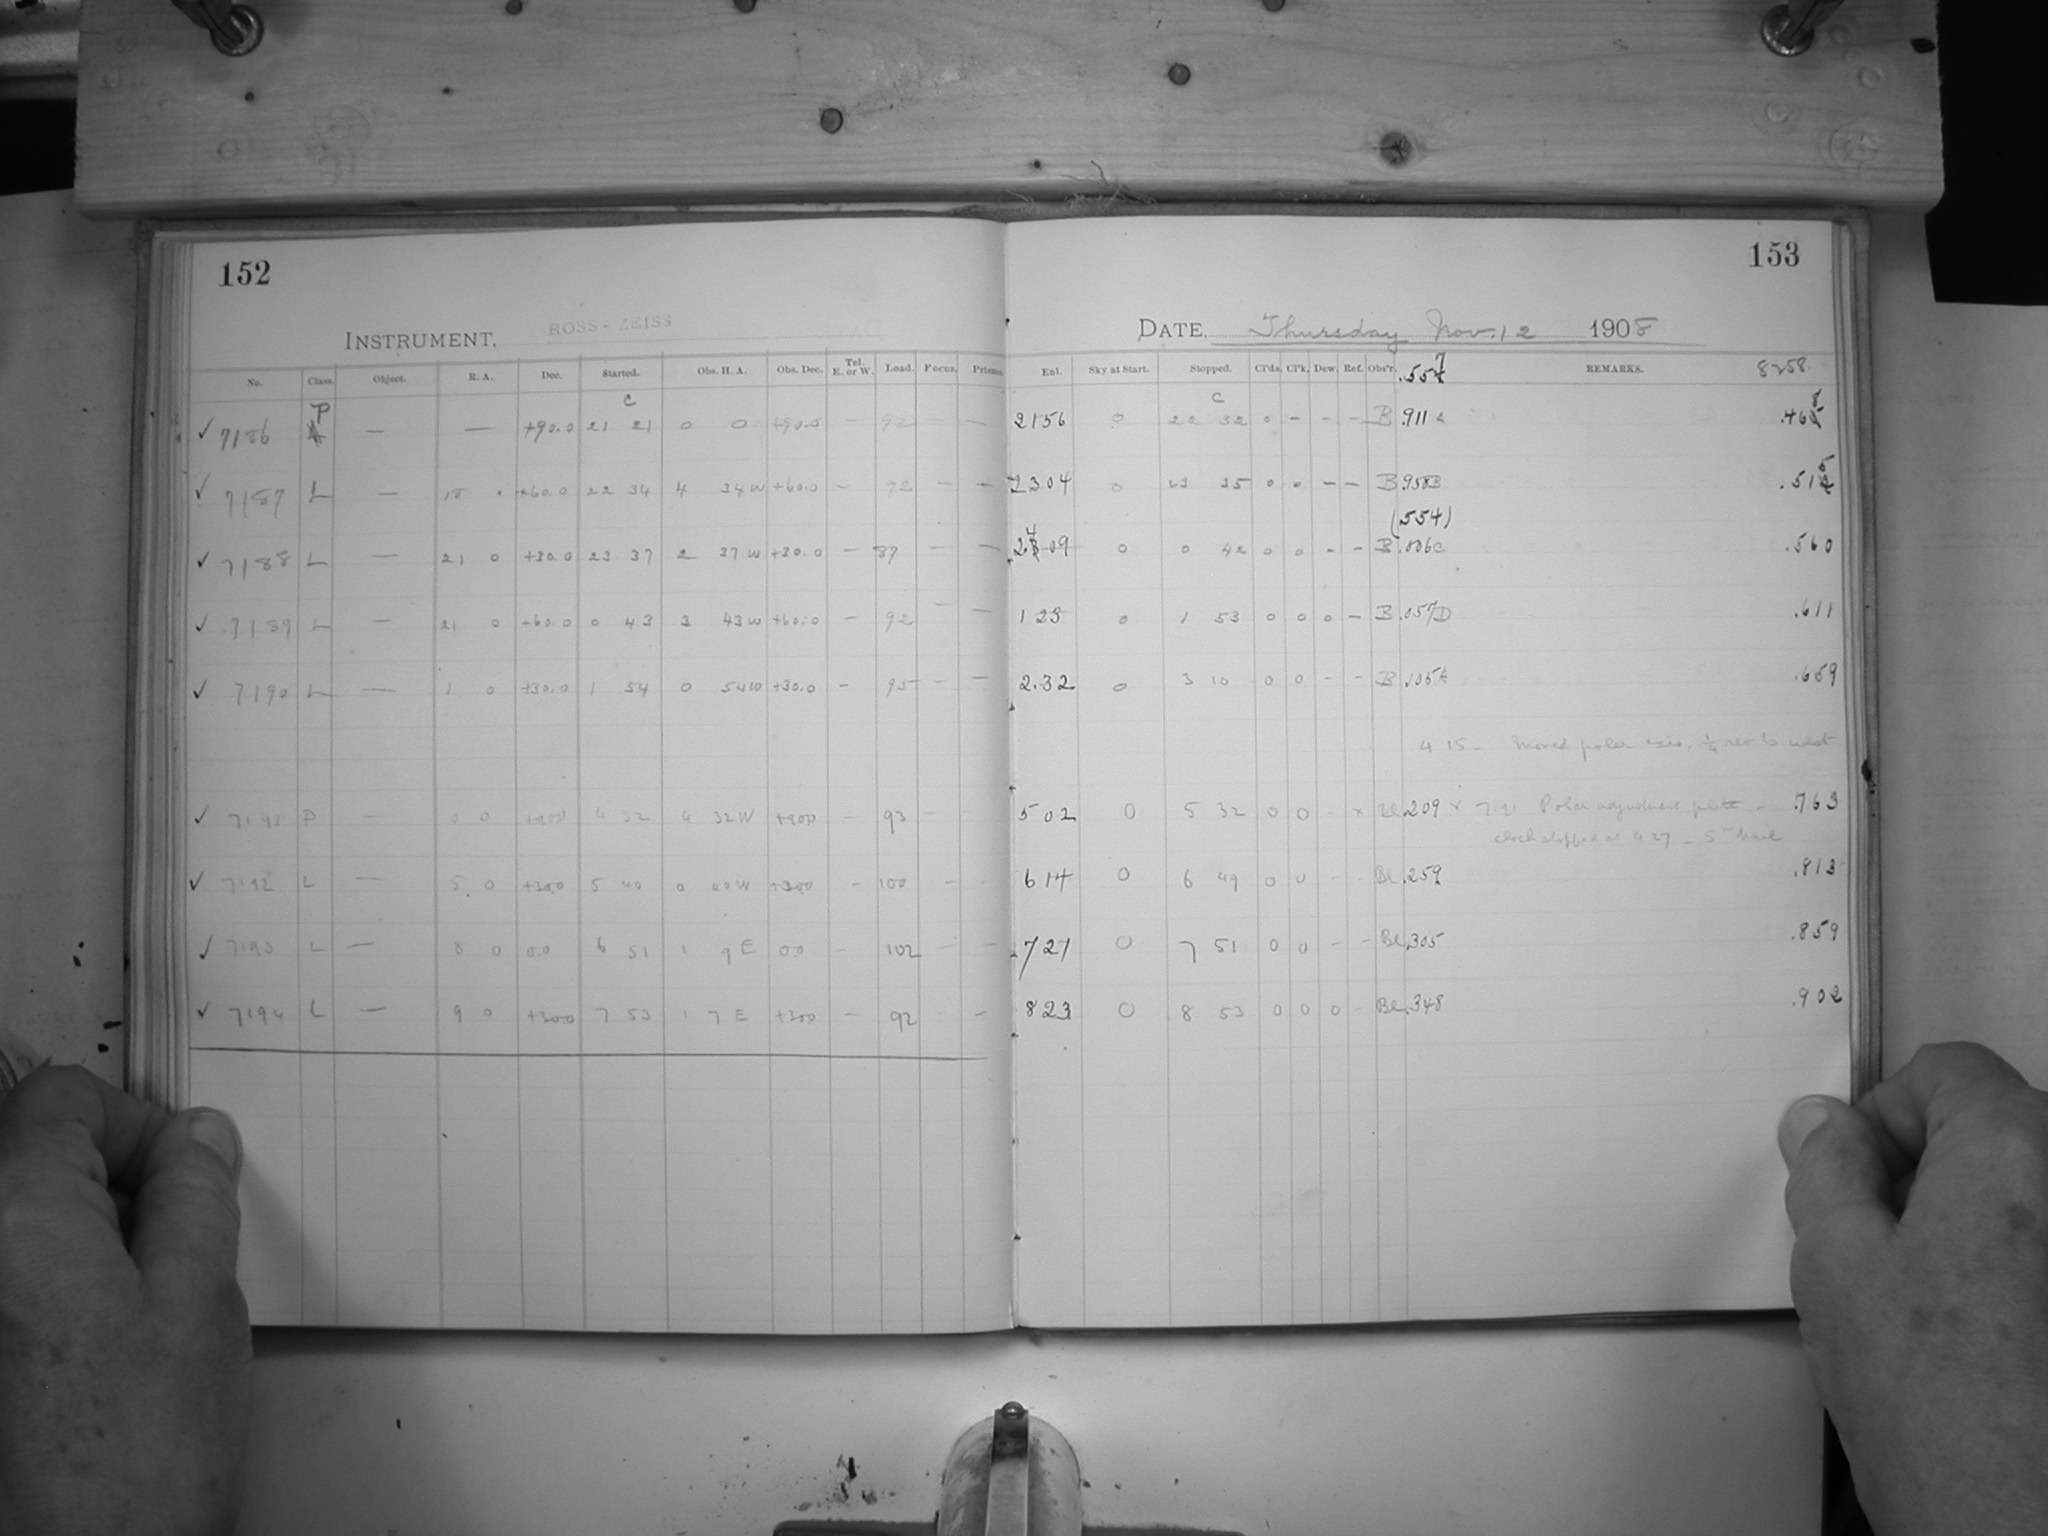 152
153
INSTRUMENT, ROSS-ZEISS
DATE, Thursday Nov. 12 1908
No. Class. Object. R. A. Dec. Started. Obs. H. A. Obs. Dec. Tel. E. or W. Load. Focus. Prisms.
Enl. Sky at Start. Stopped. Cl'ds. Cl'k. Dew. Ref. Obs'r. REMARKS. 8258
C C
✓ 7186 P — — +90.0 21 21 0 0 +90.0 — 92 — — 2156 0 22 32 0 - - - B .911 A
✓ 7187 L — 18 0 +60.0 22 34 4 34W +60.0 — 92 - — 2304 0 23 35 0 0 - — B .958B
(554)
✓ 7188 L — 21 0 +30.0 23 37 2 37W +30.0 — 87 — — 2409 0 0 42 0 0 - - B .006C .560
✓ 7189 L — 21 0 +60.0 0 43 3 43W +60.0 — 92 - — 123 0 1 53 0 0 0 - B .057D .611
✓ 7190 L — 1 0 +30.0 1 54 0 54W +30.0 - 95 - — 2.32 0 3 10 0 0 - - B .105A .659
4 15 - Moved polar axis, 1/4 rev to west
✓ 7191 P — 0 0 +90.0 4 32 4 32W +90.0 — 93 - - 502 0 5 32 0 0 - x Bl .209 7191 Polar adjustment plate - .763
clock stopped at 4 27 -
✓ 7192 L — 5 0 +30.0 5 40 0 40W +30.0 - 100 - 614 0 6 49 0 0 - - Bl .259 .813
✓ 7193 L — 8 0 0.0 6 51 1 9E 0.0 - 102 - — 721 0 7 51 0 0 - - Bl .305 .859
✓ 7194 L — 9 0 +30.0 7 53 1 7E +30.0 — 92 - — 823 0 8 53 0 0 0 - Bl .348 .902